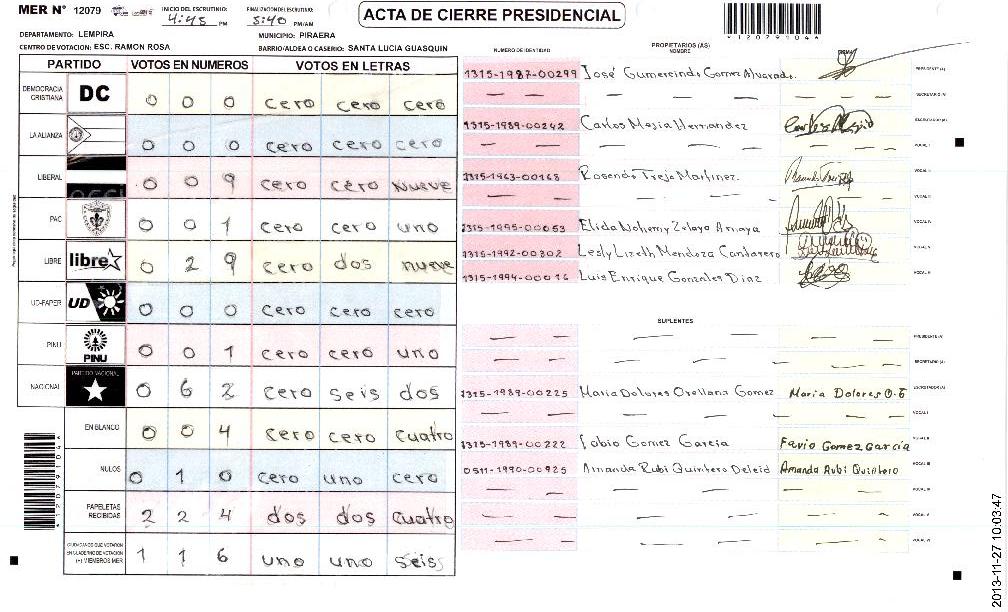 MER N° 12079
INICIO DEL ESCRUTINIO: 4:45 PM
FINALIZACION DEL ESCRUTINIO: 5:40 PM/AM
ACTA DE CIERRE PRESIDENCIAL
*12079104*
DEPARTAMENTO: LEMPIRA
MUNICIPIO: PIRAERA
CENTRO DE VOTACION: ESC. RAMON ROSA
BARRIO/ALDEA O CASERIO: SANTA LUCIA GUASQUIN
PARTIDO VOTOS EN NUMEROS VOTOS EN LETRAS
DEMOCRACIA CRISTIANA DC 0 0 0 cero cero cero
LA ALIANZA 0 0 0 cero cero cero
LIBERAL 0 0 9 cero cero nueve
PAC 0 0 1 cero cero uno
LIBRE libre 0 2 9 cero dos nueve
UD-FAPER UD 0 0 0 cero cero cero
PINU PINU 0 0 1 cero cero uno
NACIONAL PARTIDO NACIONAL 0 6 2 cero seis dos
EN BLANCO 0 0 4 cero cero cuatro
NULOS 0 1 0 cero uno cero
PAPELETAS RECIBIDAS 2 2 4 dos dos cuatro
CIUDADANOS QUE VOTARON EN CUADERNO DE VOTACION (+) MIEMBROS MER 1 1 6 uno uno seis
*12079104*
NUMERO DE IDENTIDAD PROPIETARIOS (AS) NOMBRE FIRMA
1315-1987-00299 José Gumercindo Gomez Alvarado PRESIDENTE (A)
— — — — — — SECRETARIO (A)
1315-1989-00242 Carlos Mejia Hernandez ESCRUTADOR (A)
— — — — — — VOCAL I
1315-1963-00168 Rosendo Trejo Martinez VOCAL II
— — — — — — VOCAL III
1315-1995-00053 Elida Nohemy Zelaya Amaya VOCAL IV
1315-1992-00302 Lesly Lizeth Mendoza Cantarero VOCAL V
1315-1994-00016 Luis Enrique Gonzales Diaz VOCAL VI
SUPLENTES
— — — — — PRESIDENTE (A)
— — — — — — SECRETARIO (A)
1315-1989-00225 Maria Dolores Orellana Gomez Maria Dolores O.G ESCRUTADOR (A)
— — — — — — VOCAL I
1315-1989-00222 Fabio Gomez Garcia Favio Gomez Garcia VOCAL II
0511-1990-00925 Amanda Rubi Quintero Deleid Amanda Rubi Quintero VOCAL III
— — — — — — VOCAL IV
— — — — — — VOCAL V
— — — — — — VOCAL VI
2013-11-27 10:03:47